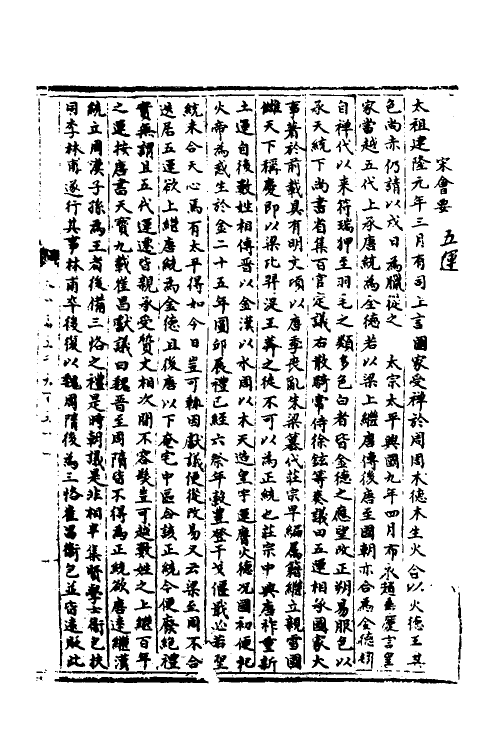 宋會要 五運
太祖建隆元年三月有司上言國家受禪於周周木德木生火合以火德王其
色尚赤仍請以戌日為臘從之 太宗太平興國九年四月布衣趙垂慶言皇
家當越五代上承唐統為金德若以梁上繼唐傳後唐至國朝亦合為金德矧
自禪代以來符瑞狎至羽毛之類多色白者皆金德之應望改正朔易服色以
承天統下尚書省集百官定議右散騎常侍徐鉉等奏議曰五運相承國家大
事著於前載具有明文頃以唐季喪亂朱梁篡代莊宗早編屬籍繼立親雪國
讎天下稱慶即以梁比羿浞王莽之徒不可以為正統也莊宗中興唐祚重新
土運自後數姓相傳晉以金漢以水周以木天造皇宋運膺火德況國初便祀
火帝為感生於今二十五年圜邱展禮已經六祭年穀豐登干戈偃戢必若聖
統未合天心焉有太平得如今日豈可輒因獻議便從改易又云梁至周不合
迭居五運欲上繼唐統為金德且後唐以下奄宅中區合該正統今便廢絕禮
實無謂且五代運遷皆親承受質文相次間不容髮豈可越數姓之上繼百年
之運按唐書天寶九載崔昌獻議曰魏晉至周隋皆不得為正統欲唐遠繼漢
統立周漢子孫為王者後備三恪之禮是時朝議是非相半集賢學士衛包扶
同李林甫遂行其事林甫卒後復以魏周隋後為三恪崔昌衛包並皆遠貶此